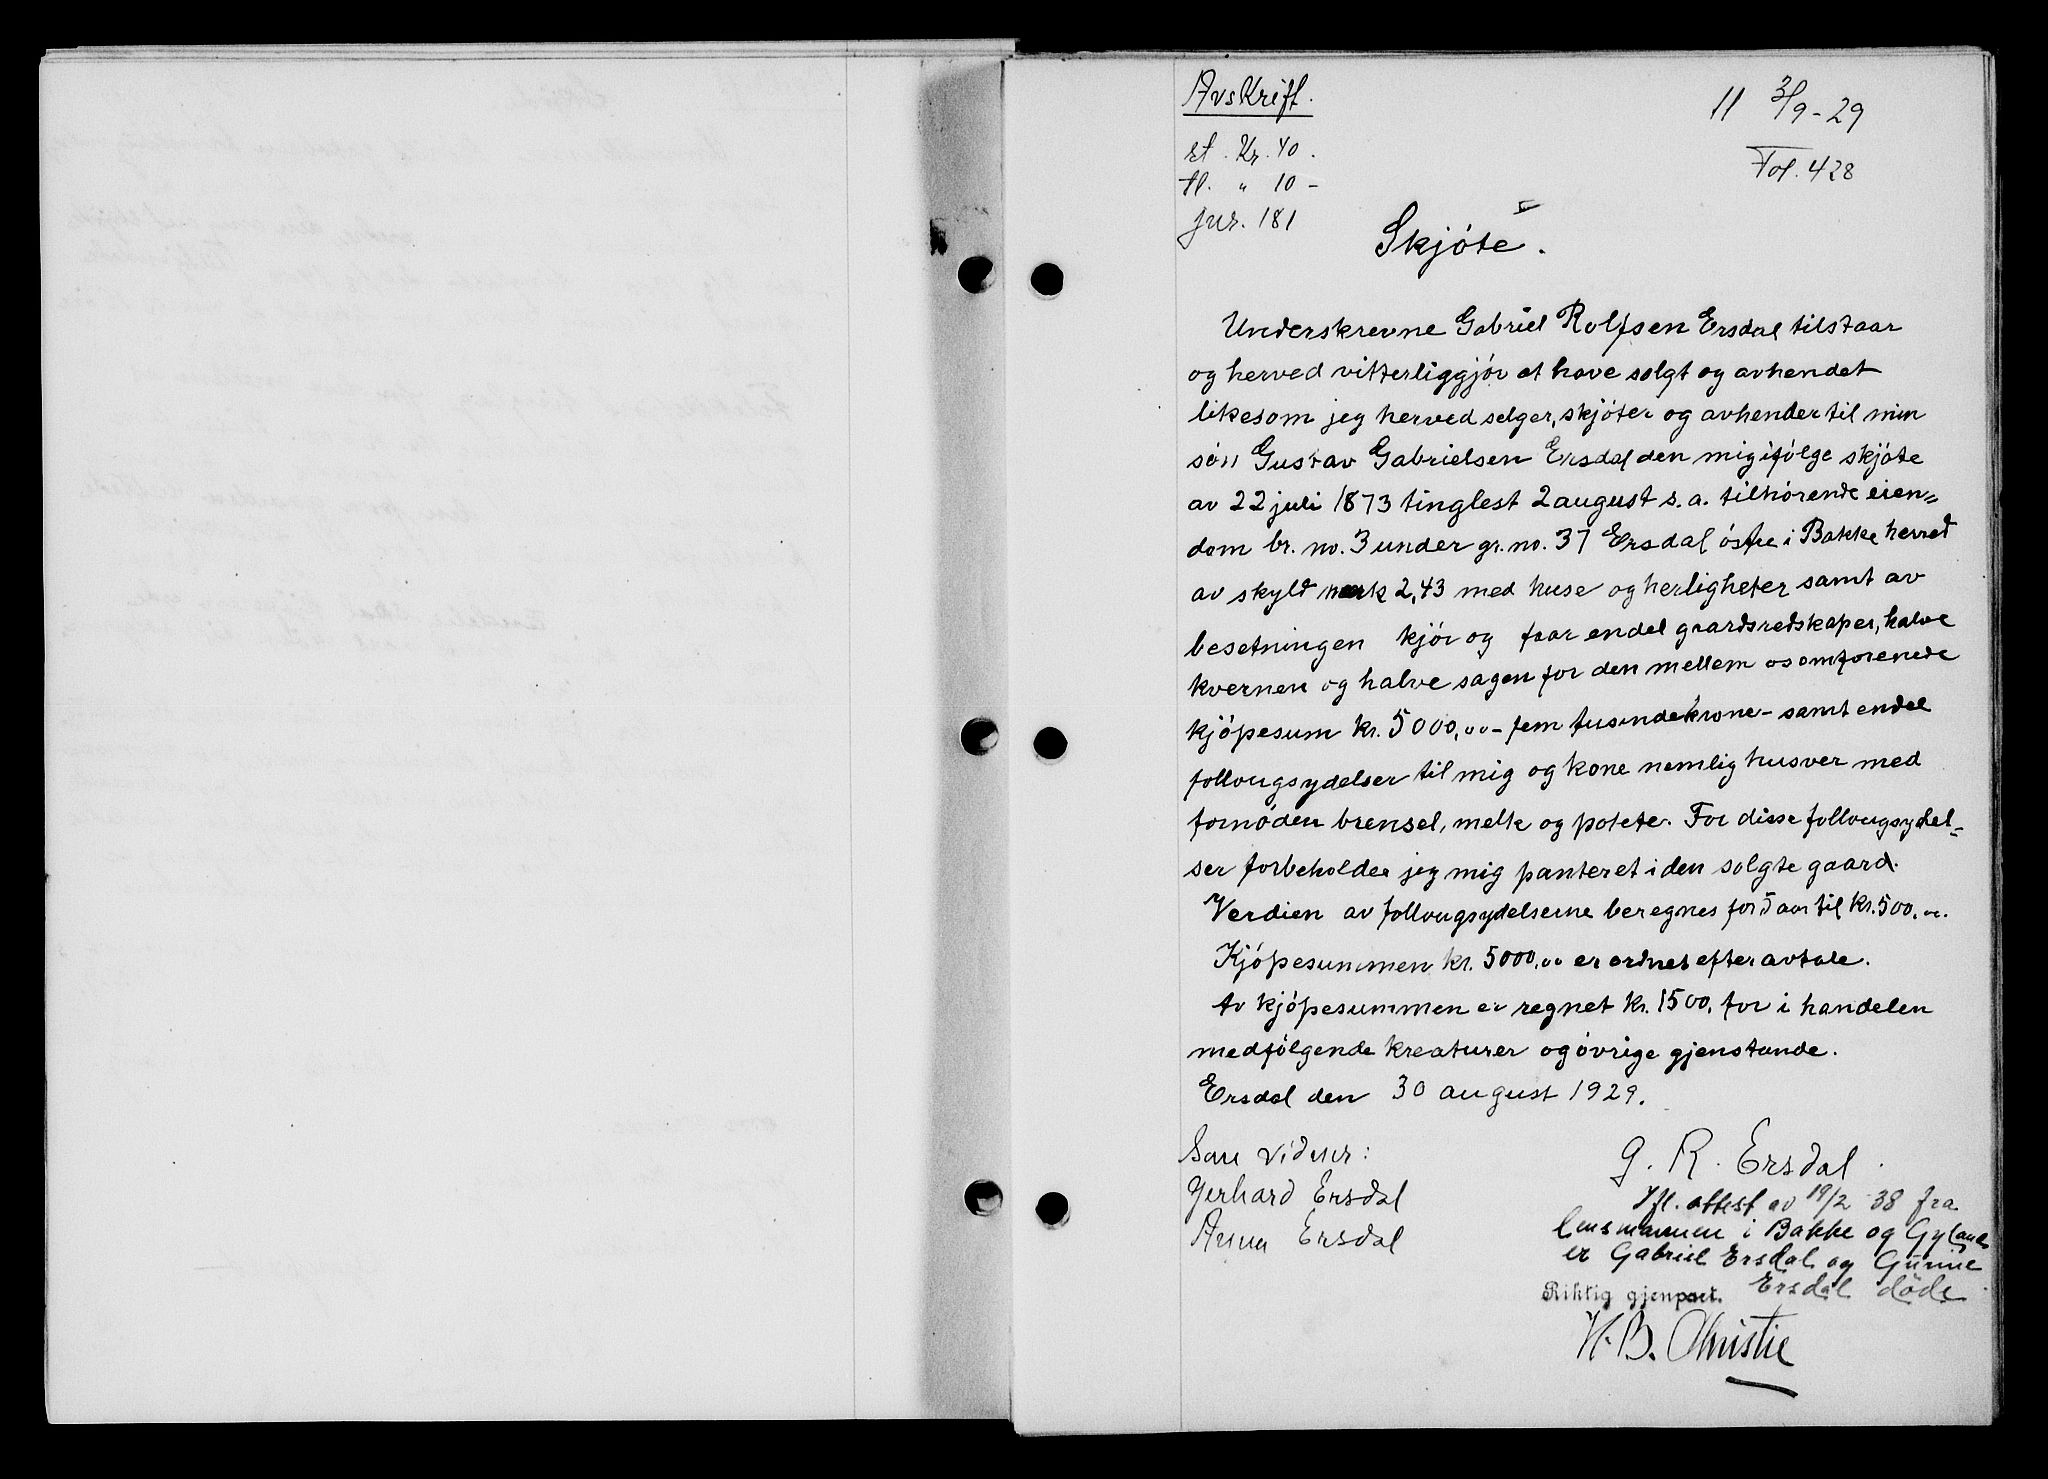 Avskrift.
st. Kr. 40.
tl. " 10 -
jur. 181
11 3/9 - 29
Fol. 428
Skjøte.
Underskrevne Gabriel Rolfsen Ersdal tilstaar
og herved vitterliggjør at have solgt og avhendet
likesom jeg herved selger, skjøter og avhender til min
søn Gustav Gabrielsen Ersdal den mig ifølge skjøte
av 22 juli 1873 tinglest 2 august s. a. tilhørende eien=
dom br. no. 3 under gr. no. 37 Ersdal østre i Bakke herred
av skyld mark 2,43 med huse og herligheter samt av
besetningen kjør og faar endel gaardsredskaper, halve
kvernen og halve sagen for den mellem os omforenede
kjøpesum kr. 5000,00 - fem tusinde krone - samt endel
follougsydelser til mig og kone nemlig husver med
fornøden brensel, melk og potete. For disse follougsydel=
ser forbeholder jeg mig panteret i den solgte gaard.
Verdien av follougsydelserne beregnes for 5 aar til kr. 500,00.
Kjøpesummen kr. 5000,00 er ordnet efter avtale.
Av kjøpesummen er regnet kr. 1500, for i handelen
medfølgende kreaturer og øvrige gjenstande.
Ersdal den 30 august 1929.
G. R. Ersdal.
Som vidner:
Gerhard Ersdal
Anna Ersdal
Ifl. attest av 19/2 38 fra
lensmannen i Bakke og Gyland
er Gabriel Ersdal og Gunne
Ersdal døde
Riktig gjenpart.
H. B. Christie